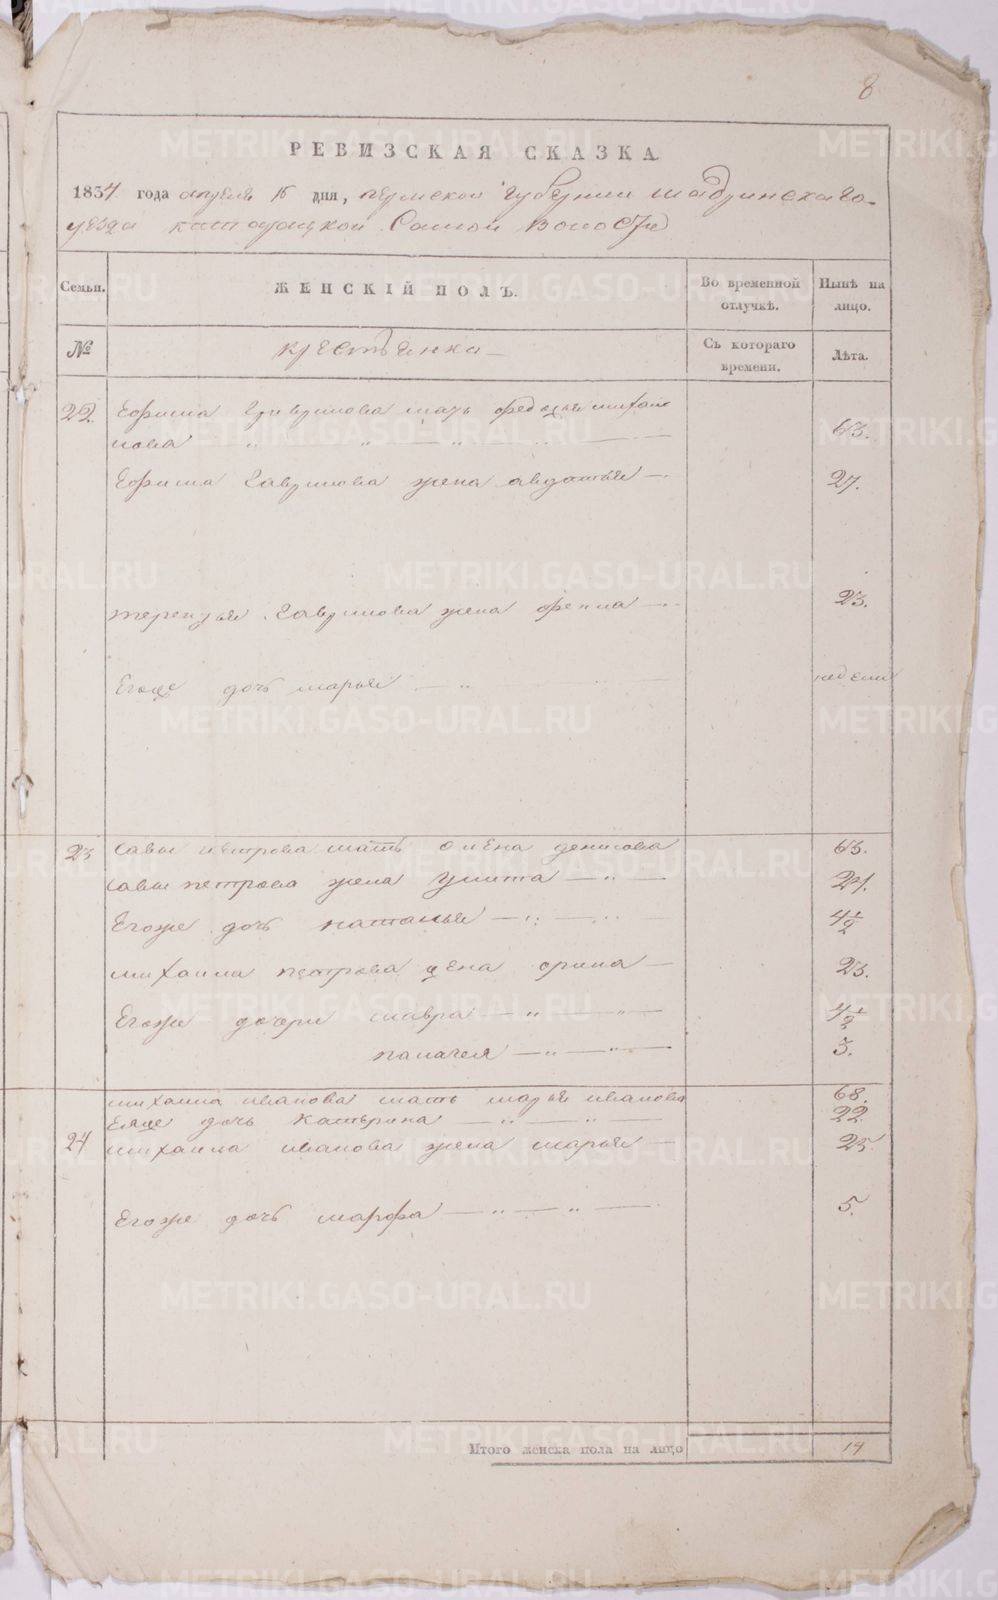 8
РЕВИЗСКАЯ СКАЗКА
1834 года апреля 15 дня, пермской губернии шадринскаго
уезда катайской Самой волости
Семьи.
ЖЕНСКІЙ ПОЛЪ.
Во временной отлучкѣ.
Нынѣ на лицо.
№
крестьянка
Съ котораго времени.
Лѣта.
22. Ефима Гаврилова мать федосья михай
лова 63.
Ефима Гаврилова жена авдотья 27.
терентья Гаврилова жена 23.
Егоже дочь марья недели
23 савы петрова мать олена денисова 63.
савы петрова жена улита 21.
Егоже дочь наталья 4 1/2
михаила петрова жена орина 23.
Егоже дочери мавра 4 1/2
палагея 3.
михаила иванова мать марья иванова 68.
Еяже дочь катерина 22.
24 михаила иванова жена марья 25.
Егоже дочь марфа 5.
Итого женска пола на лицо 14
METRIKI.GASO-URAL.RU